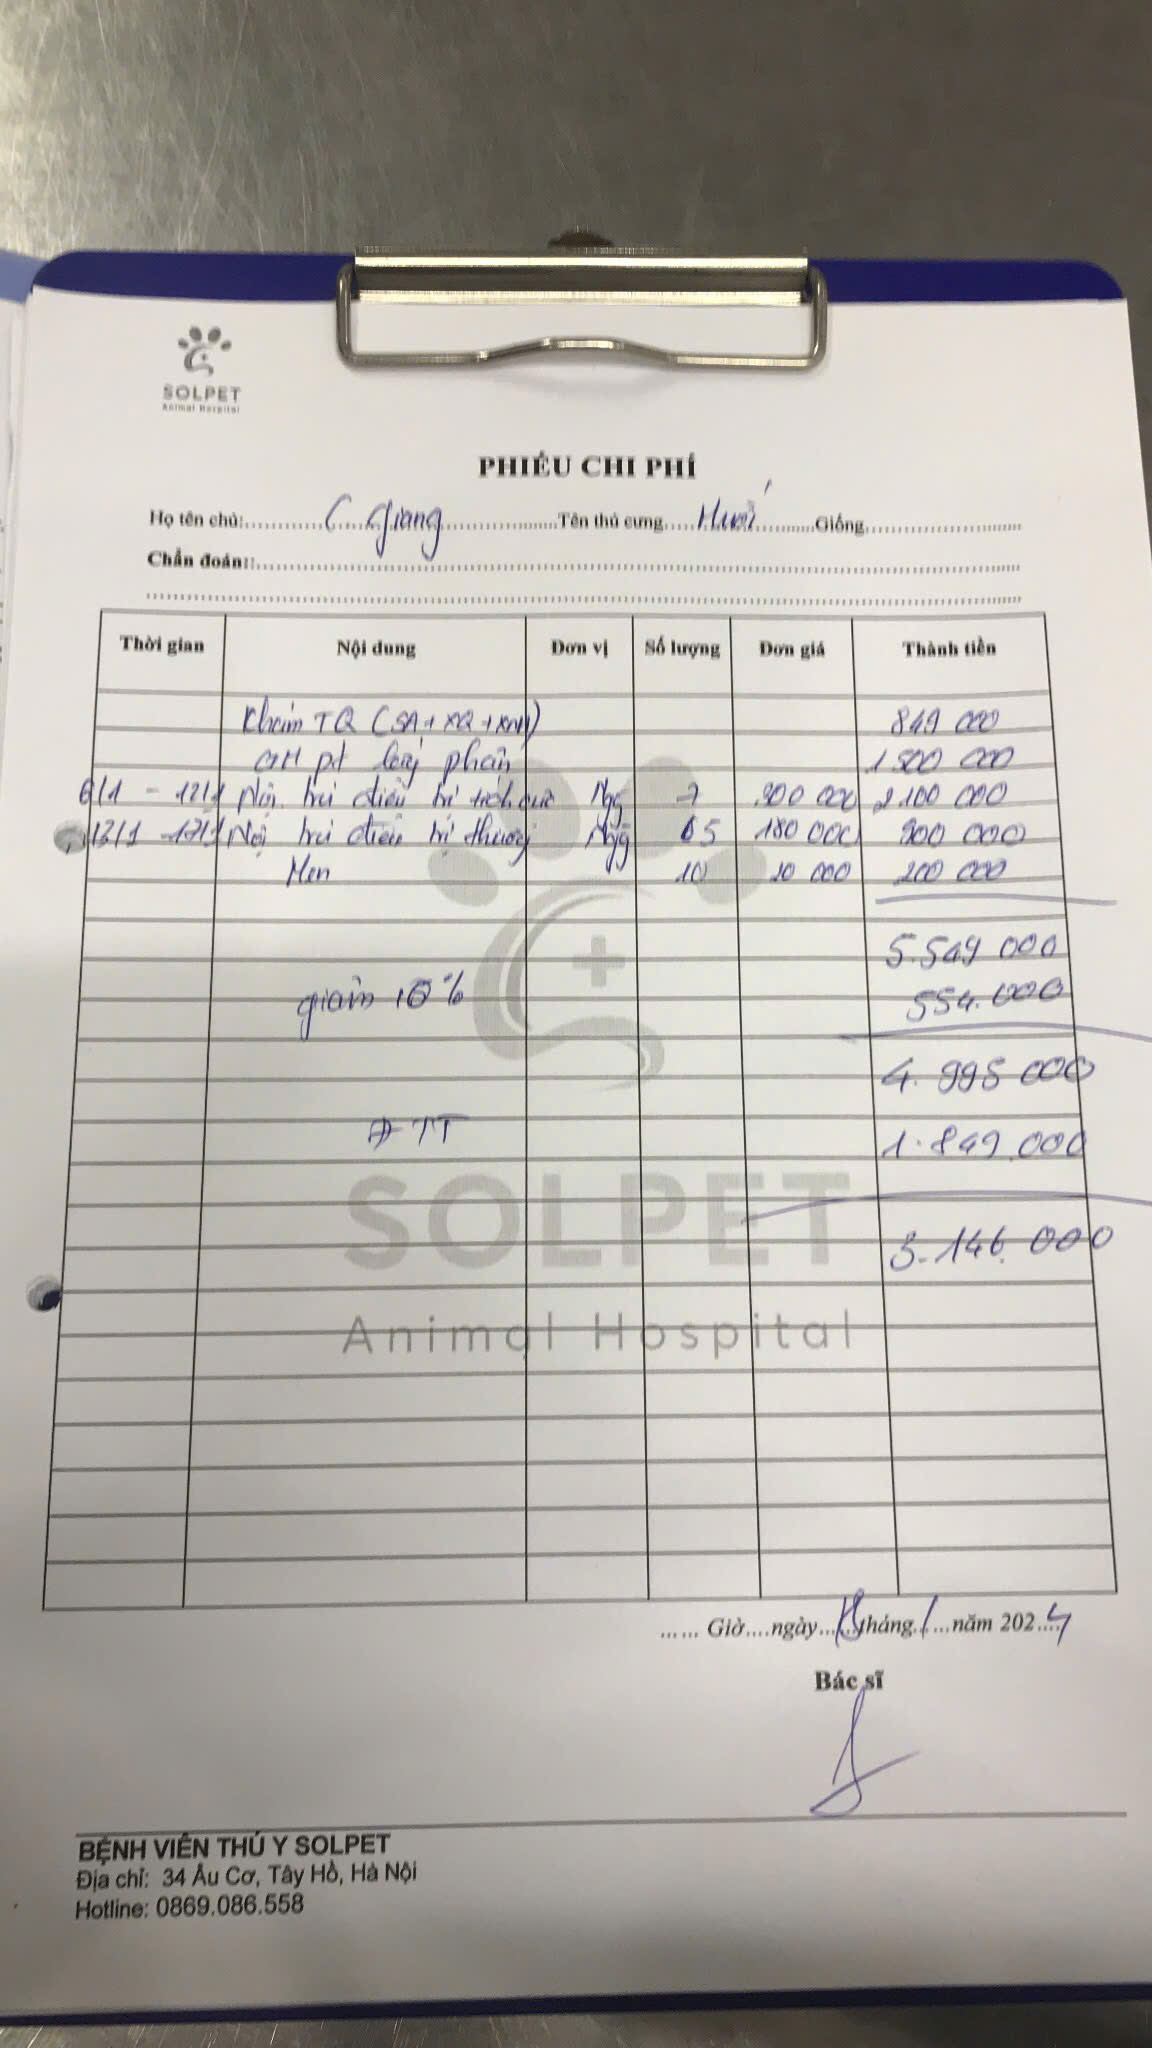 SOLPET
Animal Hospital
PHIẾU CHI PHÍ
Họ tên chủ: C Giang Tên thú cưng Muối Giống
Chẩn đoán:
Thời gian Nội dung Đơn vị Số lượng Đơn giá Thành tiền
Khám TQ (SA + XQ + XNM) 849 000
GM pt lấy phân 1 500 000
6/1 - 12/1 Nội trú điều trị tích cực Ng 7 300 000 2 100 000
13/1 - 17/1 Nội trú điều trị thường Ng 5 180 000 900 000
Men 10 20 000 200 000
5.549 000
giảm 10% 554.000
4.995 000
Đ TT 1.849.000
3.146.000
SOLPET
Animal Hospital
Giờ ngày 18 tháng 1 năm 2024
Bác sĩ
BỆNH VIÊN THÚ Y SOLPET
Địa chỉ: 34 Âu Cơ, Tây Hồ, Hà Nội
Hotline: 0869.086.558